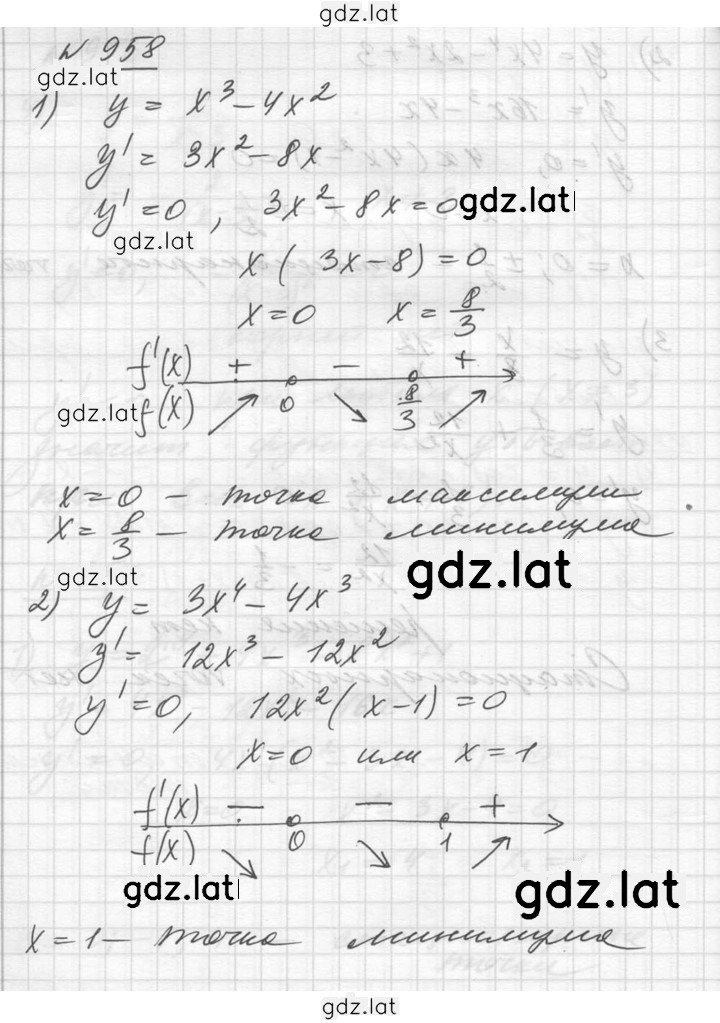 gdz.lat
№ 958
gdz.lat
1) y = x³ - 4x²
y' = 3x² - 8x
y' = 0, 3x² - 8x = 0
gdz.lat
gdz.lat
x(3x - 8) = 0
x = 0 x = 8/3
f'(x) + - +
gdz.lat
f(x) ↗ 0 ↘ 8/3 ↗
x = 0 - точка максимума
x = 8/3 - точка минимума
gdz.lat
gdz.lat
2) y = 3x⁴ - 4x³
y' = 12x³ - 12x²
y' = 0, 12x²(x - 1) = 0
x = 0 или x = 1
f'(x) - - +
f(x) ↘ 0 ↘ 1 ↗
gdz.lat
gdz.lat
x = 1 - точка минимума
gdz.lat